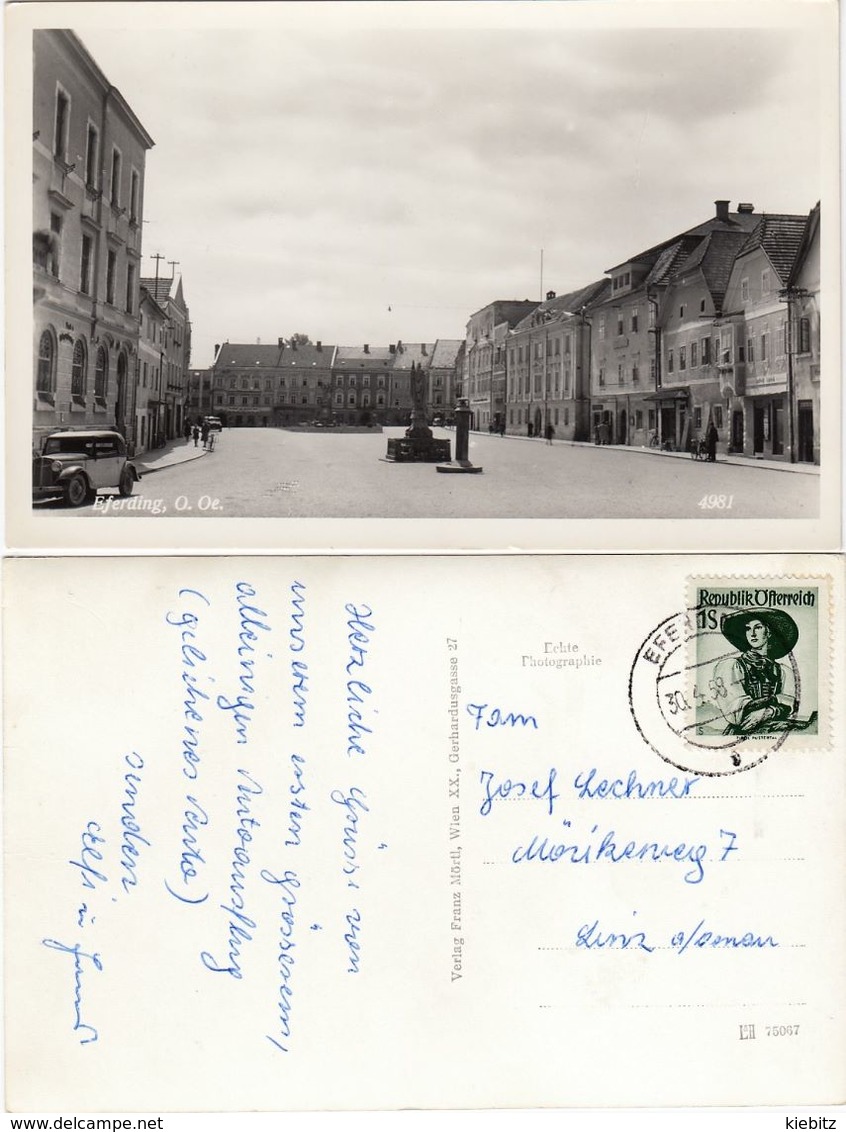 Eferding, O. Oe.
4981
Herzliche Grüsse von
unserem ersten grösseren,
alleinigen Autoausflug
(geliehenes Auto)
senden
Republik Österreich
1S
EFE
30.4.58
Echte
Photographie
Verlag Franz Mörtl, Wien XX., Gerhardusgasse 27
Fam
Josef Lechner
Mörikeweg 7
Linz a/Donau
75067
www.delcampe.net
kiebitz